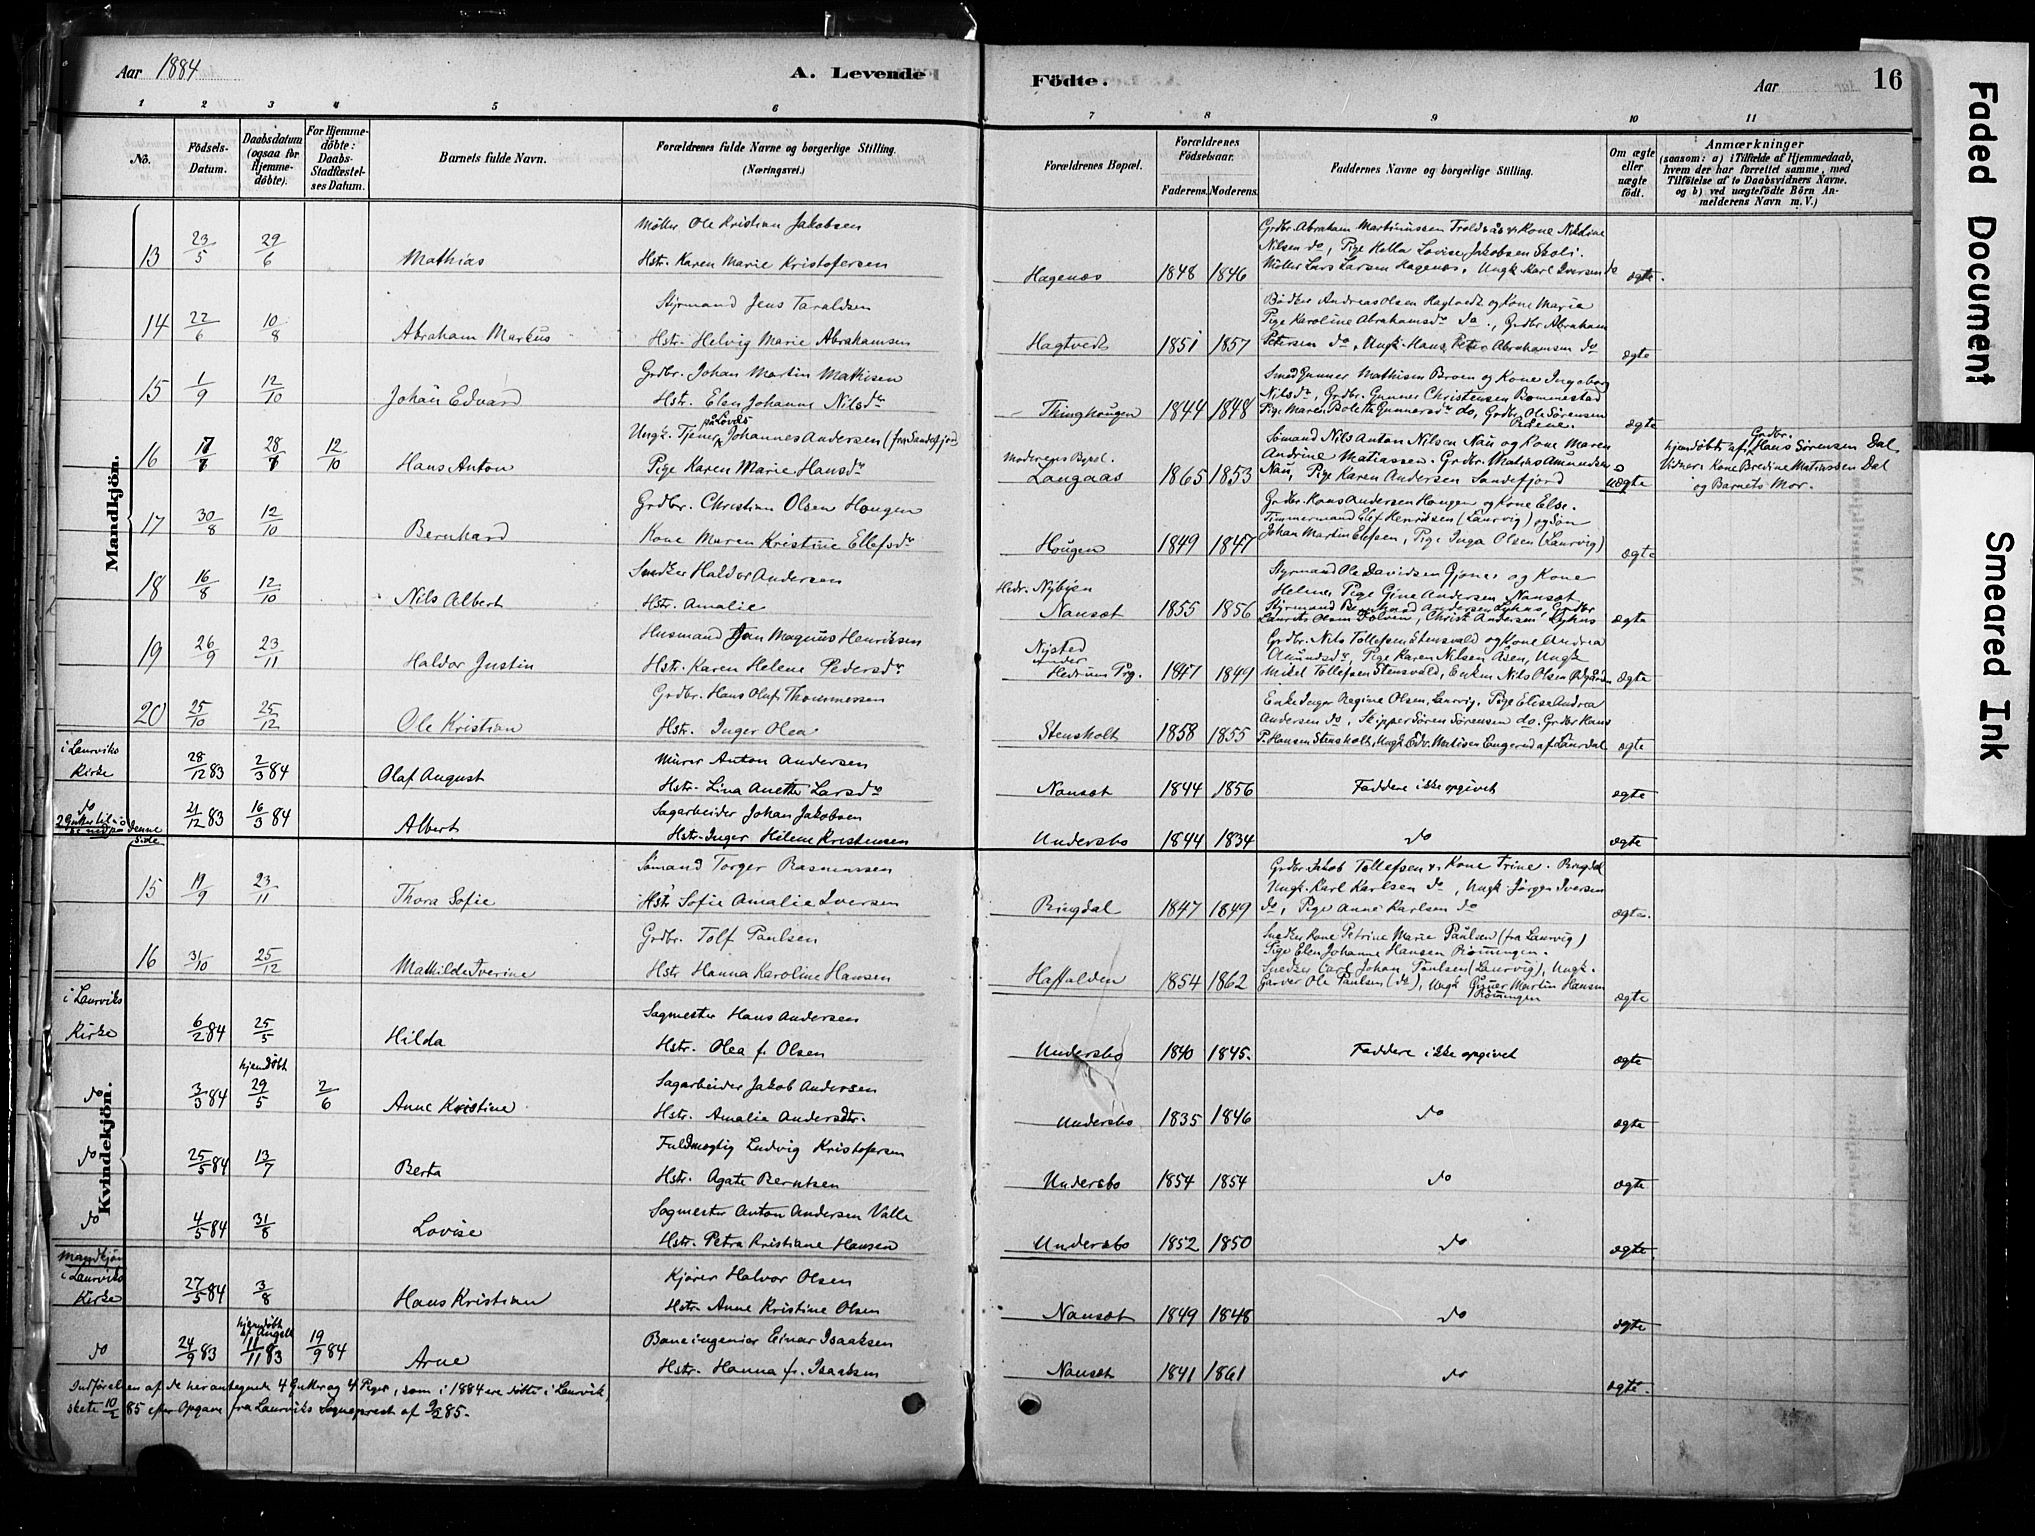 Aar 1884 A. Levende Födte. Aar 16
1 2 3 4 5 6 7 8 9 10 11
Nô. Födsels-Datum. Daabsdatum (ogsaa for Hjemme-döbte). For Hjemme-döbte: Daabs-Stadfæstel-ses Datum. Barnets fulde Navn. Forældrenes fulde Navne og borgerlige Stilling. (Næringsvei.) Forældrenes Bopæl. Forældrenes Födselsaar. Faderens. Moderens. Faddernes Navne og borgerlige Stilling. Om ægte eller uægte födt. Anmærkninger (saasom: a) i Tilfælde af Hjemmedaab, hvem der har forrettet samme, med Tilföielse af to Daabsvidners Navne, og b) ved uægtefödte Börn An-melderens Navn m. V.)
Mandkjön.
Møller Ole Kristian Jakobsen
Grdbr. Abraham Martinussen Troldsås & Kone Nikoline
Nilsen do, Pige Hella Lovise Jakobsen Skoli
13 23/5 29/6 Mathias Hstr. Karen Marie Kristofersen Hagenæs 1848 1846 Møller Lars Larsen Hagenæs, Ungk. Karl Iversen do ægte.
Styrmand Jens Taraldsen
Bødker Andreas Olsen Hagtvedt og Kone Maria
Pige Karoline Abrahamsdr do., Grdbr Abraham
14 22/6 10/8 Abraham Markus Hstr. Helvig Marie Abrahamsen Hagtvedt 1851 1857 Petersen do, Ungk. Hans Petter Abrahamsen do ægte
Grdbr. Johan Martin Mathisen
Smed Gunner Mathisen Broen og Kone Ingeborg
Nilsdr, Grdbr. Gunner Christensen Bommestad
15 1/9 12/10 Johan Edvard Hstr. Elen Johanne Nilsdr Thinghougen 1844 1848 Pige Maren Bolette Gunnersdr do, Grdbr Ole Sörensen ægte
Ungk. Tjener Johannes Andersen (fra Sandefjord
Sømand Nils Anton Nilsen Nau og Kone Maren
Moderens Bopæl.
Andrine Matiassen. Grdbr. Matias Amundsen
16 17/7 28/7 12/10 Hans Anton Pige Karen Marie Hansdr Langaas 1865 1853 Nau, Pige Karen Andersen Sandefjord uægte
hjemdøbt af Grdbr. Hans Sørensen Dal,
Vidner: Kone Bredine Matiassen Dal
og Barnets Mor.
Grdbr. Christian Olsen Hougen
Grdbr. Hans Andersen Hougen og Kone Else.
Timmermand Elef Henriksen (Laurvig) og Søn
17 30/8 12/10 Bernhard Kone Maren Kristine Ellefsdr Hougen 1849 1847 Johan Martin Elefsen, Pige Inga Olsen (Laurvig) ægte
Snedker Haldor Andersen
Styrmand Ole Davidsen Gjønes og Kone
Hedr. Nybyen
Helene, Pige Gine Andersen Nansæt
18 16/8 12/10 Nils Albert Hstr. Amalie Nansæt 1855 1856 ægte
Husmand Jan Magnus Henriksen
Grdbr. Nils Tollefsen Stensvald og Kone Andrea
Nysted under
Amundsdr, Pige Karen Nilsen Åsen, Ungk
19 26/9 23/11 Haldor Justin Hstr. Karen Helene Pedersdr Hedrum Prg. 1847 1849 Mikel Tollefsen Stensvald, Enkem Nils Olsen ægte
Grdbr. Hans Oluf Thommesen
Enke Inger Regine Olsen, Laurvig, Pige Elise Andrea
Andersen do, Skipper Sören Sörensen do. Grdbr Hans
20 25/10 25/12 Ole Kristian Hstr. Inger Olea Stensholt 1858 1855 P. Hansen Stensholt, Ungk Edv. Matisen ægte
i Laurviks Kirke 28/12 83 2/3 84 Olaf August Murer Anton Andersen
Hstr. Lina Anette Larsdr Nansæt 1844 1856 Faddere ikke opgivet ægte
do 21/12 83 16/3 84 Albert Sagarbeider Johan Jakobsen
Hstr. Inger Helene Kristensen Undersbo 1844 1834 do ægte
2 Gutter til se ned på denne side
Kvindekjön.
Sømand Torger Rasmussen
Grdbr. Jakob Tollefsen & Kone Trine. Bringdal
Ungk. Karl Karlsen do, Ungk. Jörgen Iversen
15 19/9 23/11 Thora Sofie Hstr Sofie Amalie Iversen Bringdal 1847 1849 do, Pige Anne Karlsen do ægte.
Grdbr. Tolf Paulsen
Snedker Kone Petrine Marie Paulsen (fra Laurvig)
Pige Elen Johanne Hansen Rønningen.
Snedker Carl Johan Paulsen (Laurvig), Ungk.
16 31/10 25/12 Mathilde Iverine Hstr Hanna Karoline Hansen 1854 1862 Garver Ole Paulsen (do), Ungk Gunner Martin Hansen
Rønningen ægte
i Laurviks Kirke 6/2 84 25/5 Hilda Sagmester Hans Andersen
Hstr. Olea f. Olsen Undersbo 1840 1845. Faddere ikke opgivet ægte
do 3/3 84 hjemdøbt 29/5 2/6 Anne Kristine Sagarbeider Jakob Andersen
Hstr. Amalie Andersdtr. Undersbo 1835 1846 do ægte
do 25/5 84 13/7 Berta Fuldmægtig Ludvig Kristofersen
Hstr. Agate Berntsen Undersbo 1854 1854 do ægte
do 4/5 84 31/8 Lovise Sagmester Anton Andersen Valle
Hstr. Petra Kristiane Hansen Undersbo 1852 1850 do ægte
Mandkjøn
i Laurviks Kirke 27/5 84 3/8 Hans Kristian Kjører Halvor Olsen
Hstr. Anne Kristine Olsen Nansæt 1849 1848 do ægte
do 24/9 83 hjemdøbt af Angell 11/11 83 19/9 84 Arne Baneingeniør Einar Isaaksen
Hstr. Hanna f. Isaaksen Nansæt 1841 1861 do ægte.
Indførelsen af de her antegnede 4 Gutter og 4 Piger, som i 1884 ere døbte i Laurvik,
skete 10/2 85 efter Opgave fra Laurviks Sogneprest af 9/2 85.
Faded Document
Smeared Ink